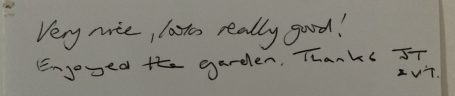 Very nice, looks really good! 
Enjoyed the garden. Thanks JT